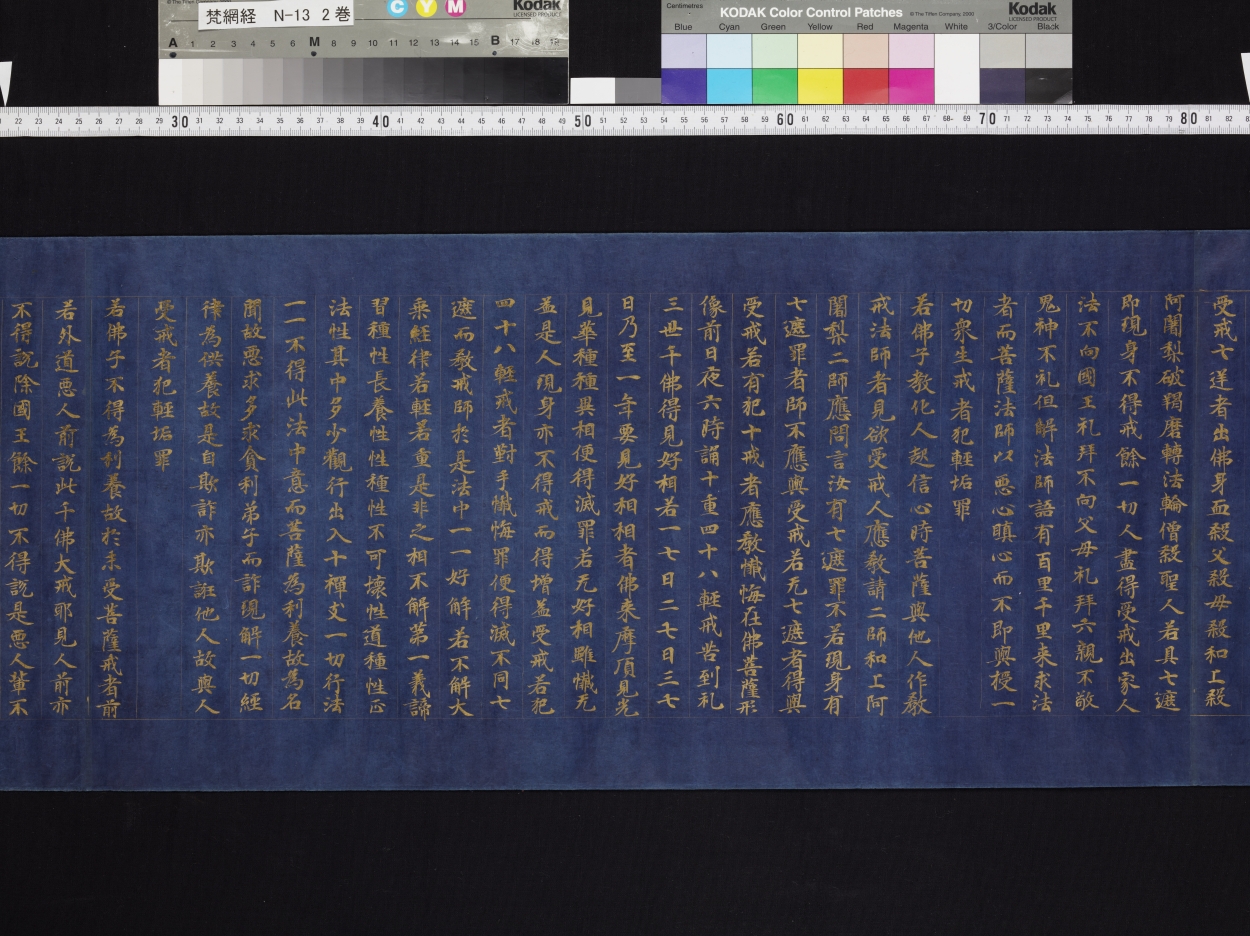 梵網経 N-13 2巻
Kodak
LICENSED PRODUCT
C Y M
A 1 2 3 4 5 6 M 8 9 10 11 12 13 14 15 B 17 18 19
Centimetres
KODAK Color Control Patches
© The Tiffen Company, 2000
Kodak
LICENSED PRODUCT
Blue Cyan Green Yellow Red Magenta White 3/Color Black
22 23 24 25 26 27 28 30 31 32 33 34 35 36 37 38 39 40 41 42 43 44 45 46 47 48 49 50 51 52 53 54 55 56 57 58 59 60 61 62 63 64 65 66 67 68 70 71 72 73 74 75 76 77 78 79 80 81 82
受戒七逆者出佛身血殺父殺母殺和上殺
阿闍梨破羯磨轉法輪僧殺聖人若具七遮
即現身不得戒餘一切人盡得受戒出家人
法不向國王礼拜不向父母礼拜六親不敬
鬼神不礼但解法師語有百里千里来求法
者而菩薩法師以悪心瞋心而不即與授一
切衆生戒者犯輕垢罪
若佛子教化人起信心時菩薩與他人作教
戒法師者見欲受戒人應教請二師和上阿
闍梨二師應問言汝有七遮罪不若現身有
七遮罪者師不應與受戒若无七遮者得與
受戒若有犯十戒者應教懺悔在佛菩薩形
像前日夜六時誦十重四十八輕戒苦到礼
三世千佛得見好相若一七日二七日三七
日乃至一年要見好相相者佛来摩頂見光
見華種種異相便得滅罪若无好相雖懺无
益是人現身亦不得戒而得増益受戒若犯
四十八輕戒者對手懺悔罪便得滅不同七
遮而教戒師於是法中一一好解若不解大
乗経律若輕若重是非之相不解第一義諦
習種性長養性性種性不可壊性道種性正
法性其中多少觀行出入十禪支一切行法
一一不得此法中意而菩薩為利養故為名
聞故悪求多求貪利弟子而詐現解一切經
律為供養故是自欺詐亦欺誑他人故與人
受戒者犯輕垢罪
若佛子不得為利養故於未受菩薩戒者前
若外道悪人前説此千佛大戒邪見人前亦
不得説除國王餘一切不得説是悪人輩不